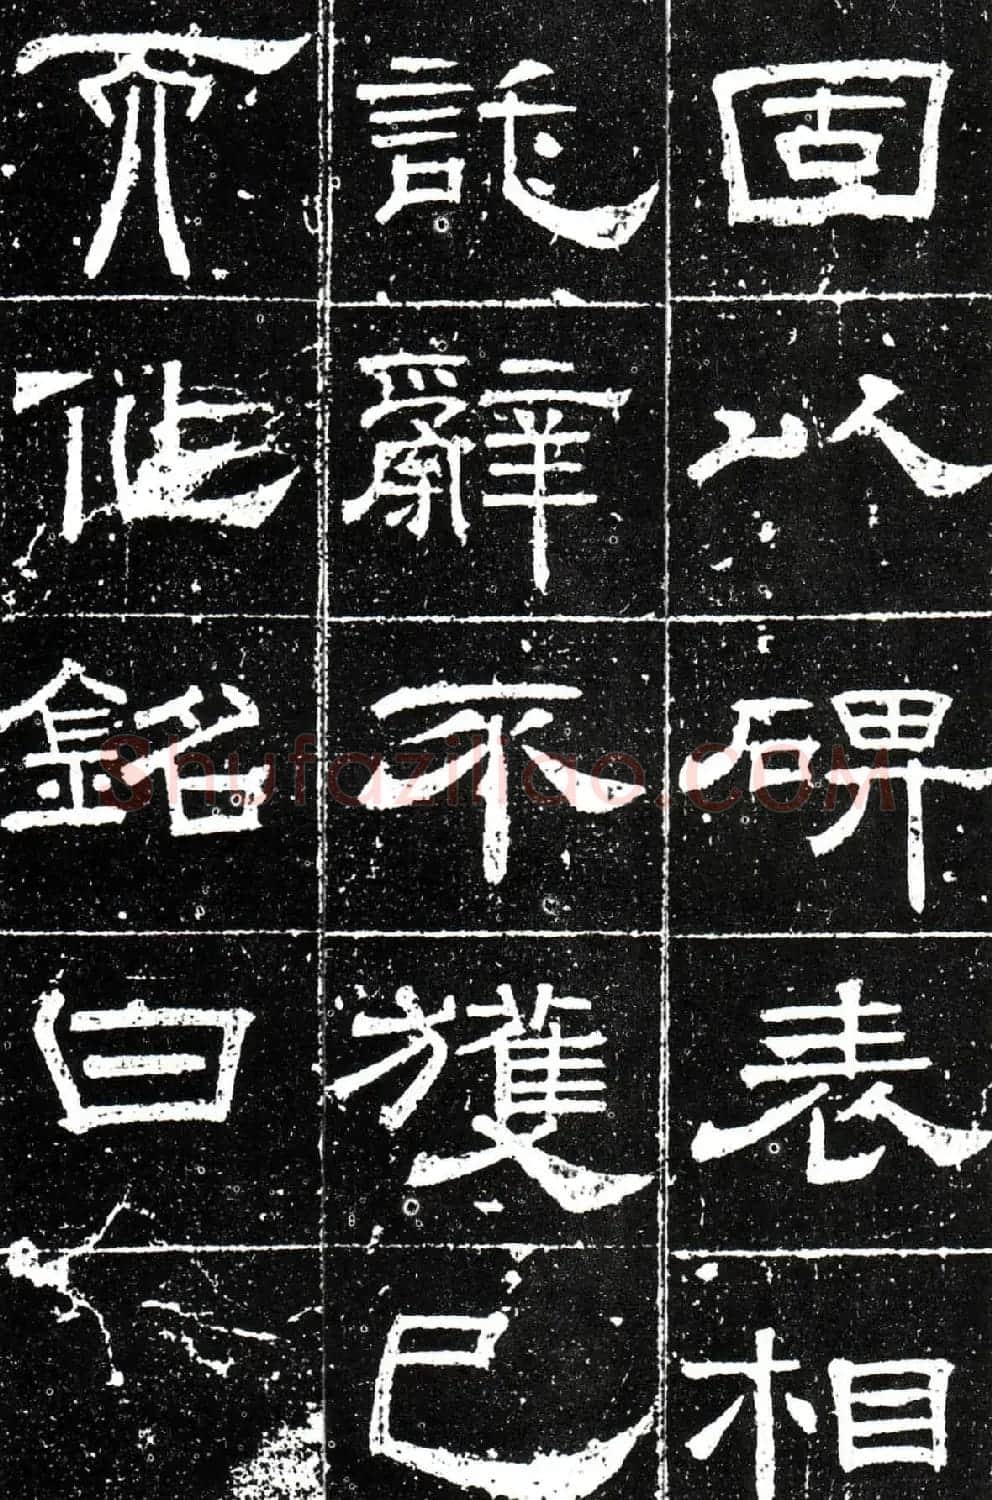 固以碑表相
託辭不獲已
而作銘曰
Shufaziliao.COM